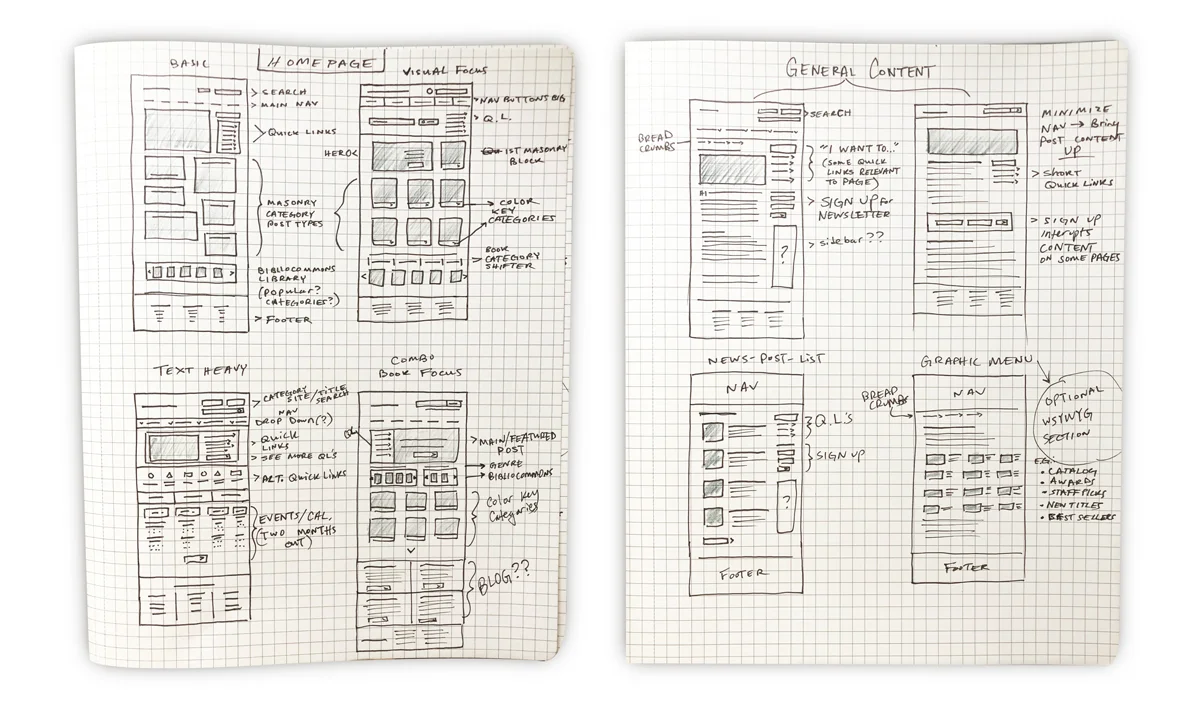 HOMEPAGE
BASIC
SEARCH
MAIN NAV
QUICK LINKS
MASONRY
CATEGORY
POST TYPES
BIBLIOCOMMONS
LIBRARY
(POPULAR?
CATEGORIES?)
FOOTER
VISUAL FOCUS
NAV BUTTONS BIG
Q.L.
HERO
1ST MASONRY
BLOCK
COLOR
KEY
CATEGORIES
BOOK
CATEGORY
SHIFTER
TEXT HEAVY
CATEGORY
SITE/TITLE
SEARCH
NAV
DROP DOWN(?)
QUICK
LINKS
SEE MORE QL'S
ART. QUICK LINKS
EVENTS/CAL.
(TWO MONTHS
OUT)
COMBO
BOOK FOCUS
MAIN/FEATURED
POST
GENRE
BIBLIOCOMMONS
Color Key
Categories
BLOG??
GENERAL CONTENT
SEARCH
BREAD
CRUMBS
"I WANT TO..."
(SOME QUICK
LINKS RELEVANT
TO PAGE)
SIGN UP for
NEWSLETTER
sidebar??
?
MINIMIZE
NAV → Bring
POST CONTENT
UP
SHORT
QUICK LINKS
SIGN UP
Interupts
CONTENT
ON SOME PAGES
NEWS-POST-LIST
NAV
Q.L.'s
SIGN UP
?
FOOTER
GRAPHIC MENU
BREAD
CRUMBS
NAV
FOOTER
OPTIONAL
WSYWYG
SECTION
EG:
• CATALOG
• AWARDS
• STAFF PICKS
• NEW TITLES
• BEST SELLERS